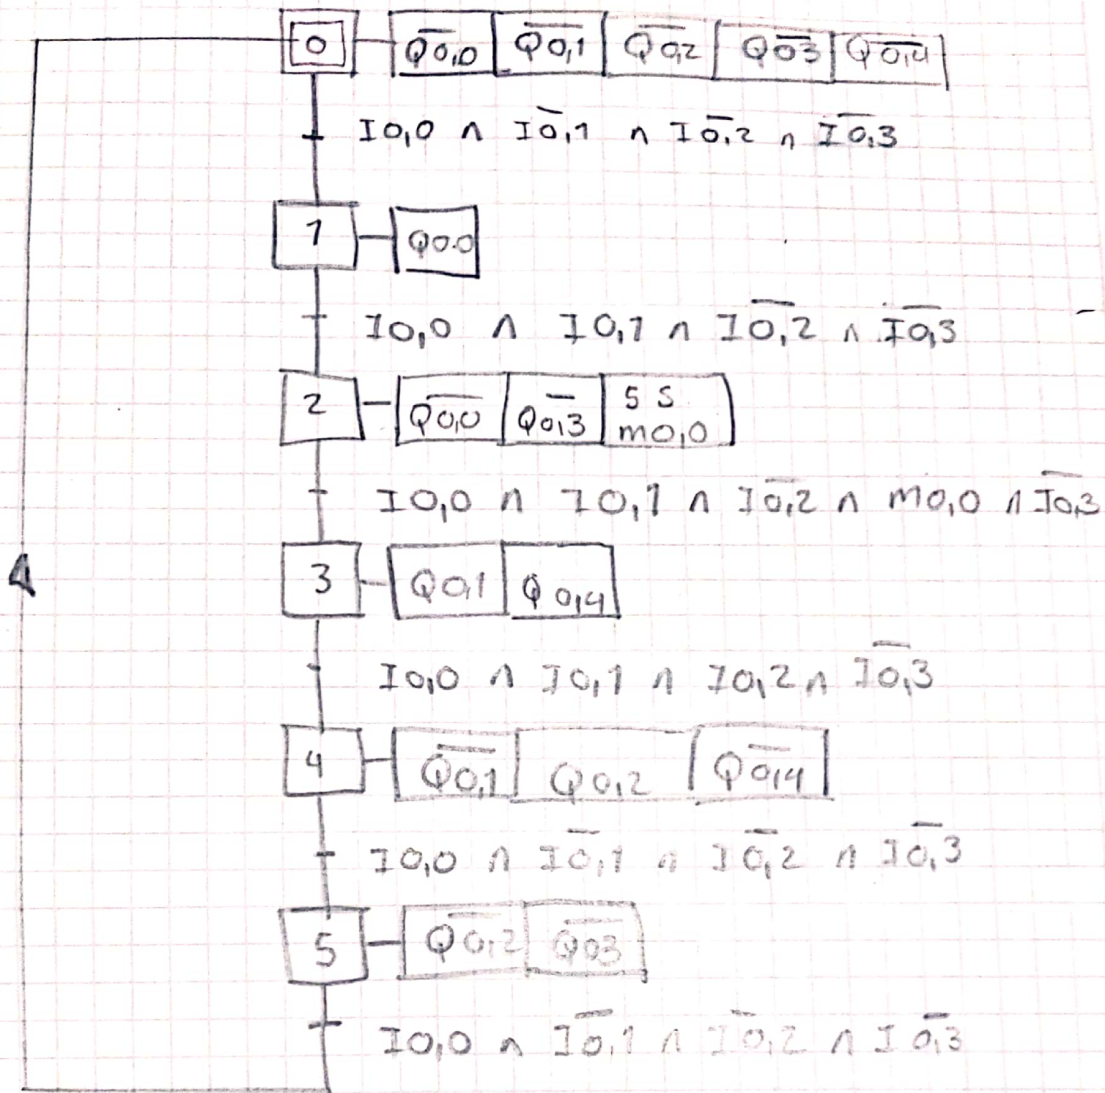 0 Q̅0̅,̅0̅ Q̅0̅,̅1̅ Q̅0̅,̅2̅ Q̅0̅3̅ Q̅0̅,̅4̅
I0,0 ∧ I̅0̅,̅1̅ ∧ I̅0̅,̅2̅ ∧ I̅0̅,̅3̅
1 Q0.0
I0,0 ∧ I0,1 ∧ I̅0̅,̅2̅ ∧ I̅0̅,̅3̅
2 Q̅0̅,̅0̅ Q̅0̅,̅3̅ 5 S
m0,0
I0,0 ∧ I0,1 ∧ I̅0̅,̅2̅ ∧ m0,0 ∧ I̅0̅,̅3̅
3 Q0,1 Q0,4
I0,0 ∧ I0,1 ∧ I0,2 ∧ I̅0̅,̅3̅
4 Q̅0̅,̅1̅ Q0,2 Q̅0̅,̅4̅
I0,0 ∧ I̅0̅,̅1̅ ∧ I̅0̅,̅2̅ ∧ I̅0̅,̅3̅
5 Q̅0̅,̅2̅ Q̅0̅3̅
I0,0 ∧ I̅0̅,̅1̅ ∧ I̅0̅,̅2̅ ∧ I̅0̅,̅3̅